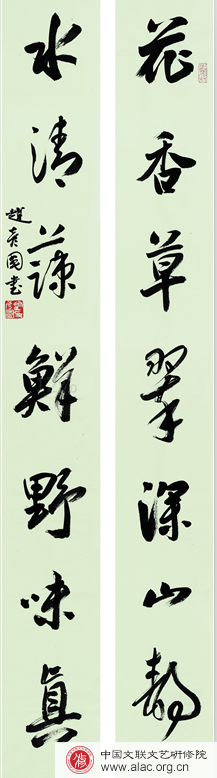 花香草翠深山静
水清蔬鲜野味真
中国文联文艺研修院
www.alac.org.cn